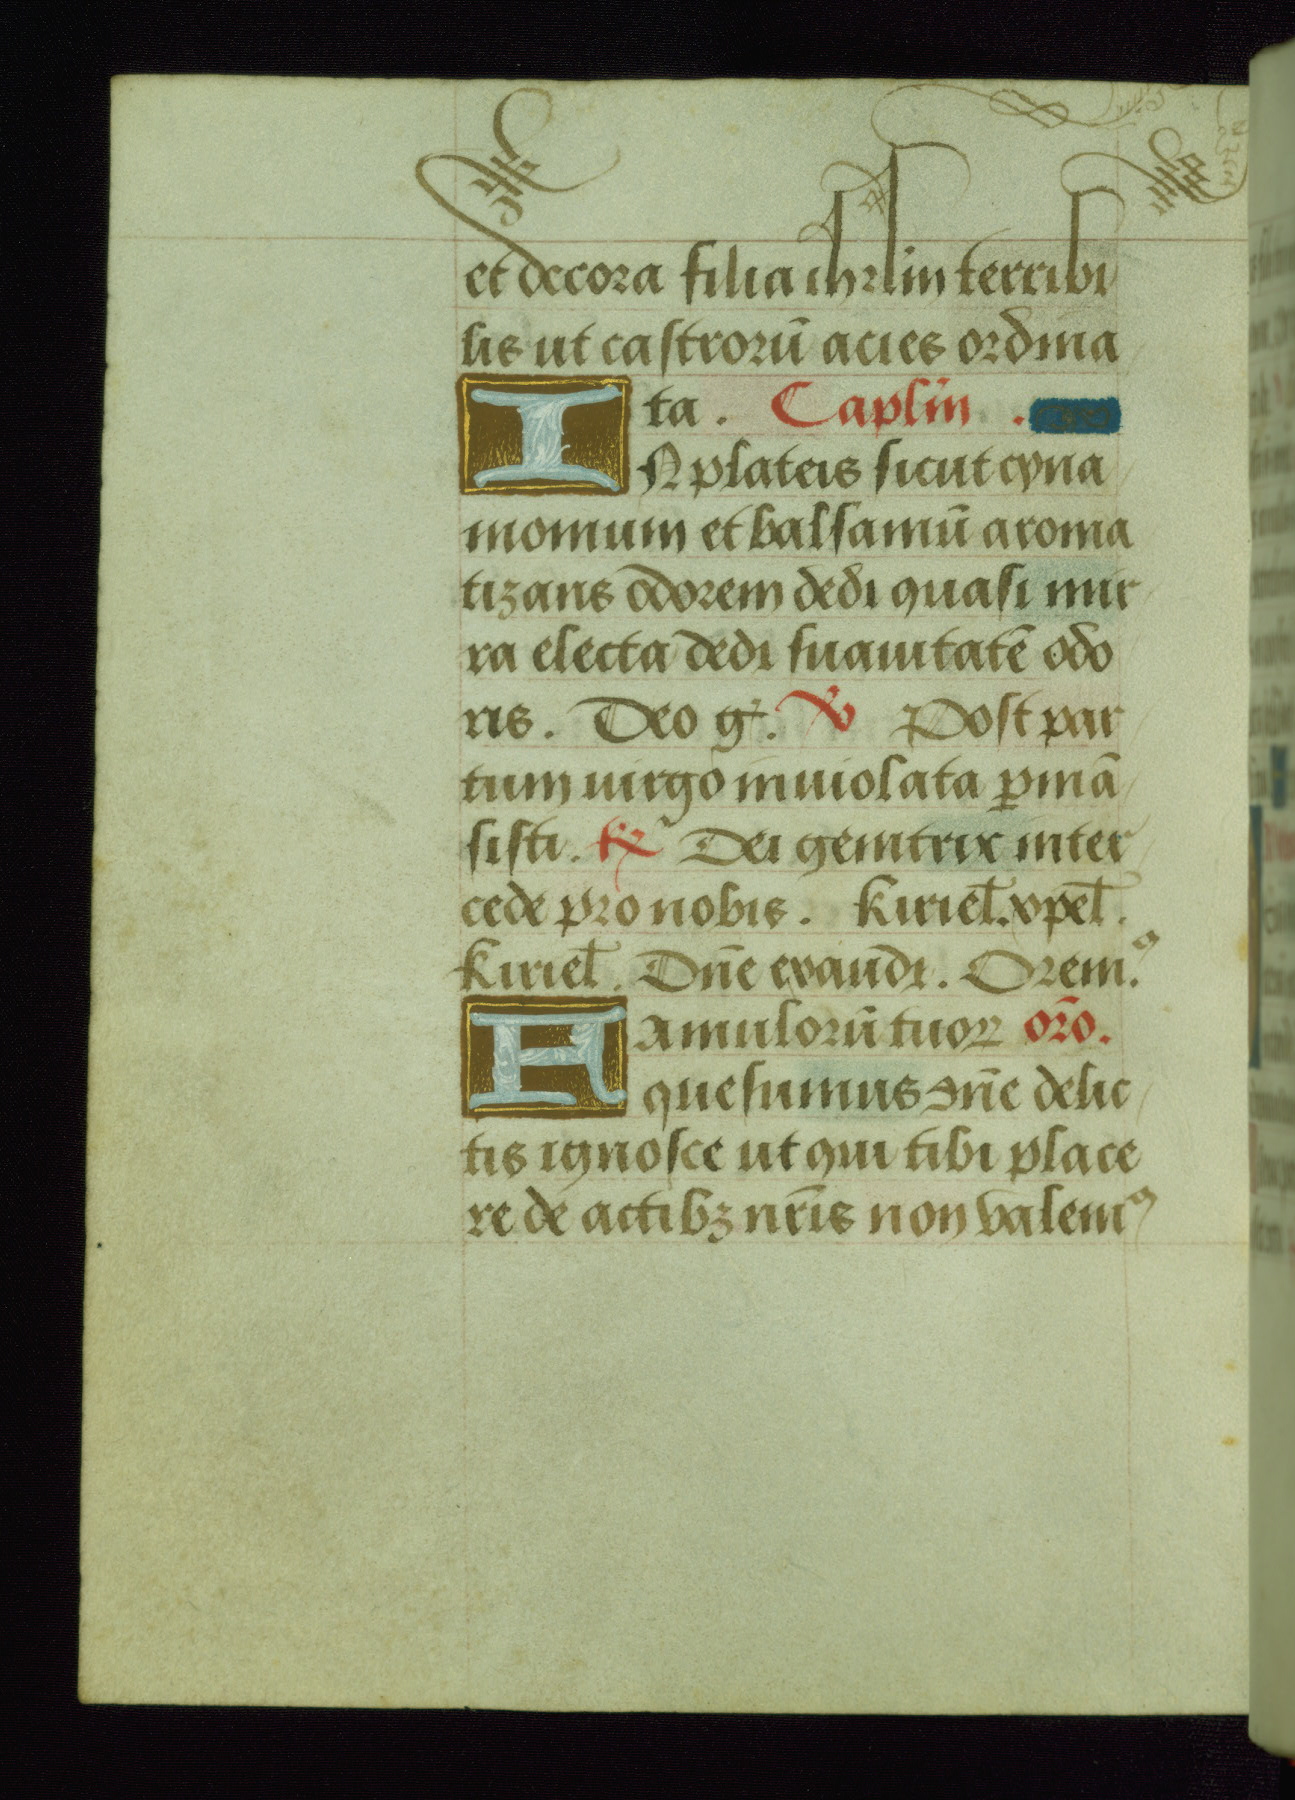 et decora filia ihrlm terribi
lis ut castrorū acies ordina
ta. Caplm.
IN plateis sicut cyna
momum et balsamū aroma
tizans odorem dedi quasi mir
ra electa dedi suauitatē odo
ris. Deo gr̄. ℣ Post par
tum uirgo inuiolata ꝑmā
sisti. ℟ Dei genitrix inter
cede pro nobis. Kiriel̄. xpel̄.
Kiriel̄. Dn̄e exaudi. Oremꝰ.
Famulorū tuoꝝ orō.
quesumus dn̄e delic
tis ignosce ut qui tibi place
re de actibꝫ nr̄is non valemꝰ